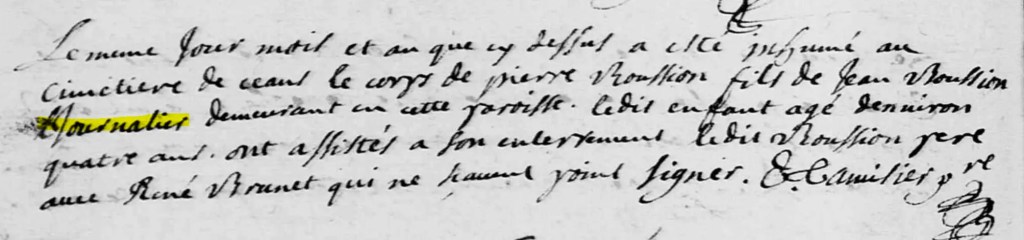 Le meme Jour mois et an que cy dessus a esté inhumé au
cimetiere de ceans le corps de pierre Roussion fils de Jean Roussion
Journalier demeurant en cette paroisse. ledit enfant agé denuiron
quatre ans. ont assistés a son enterrement ledit Roussion pere
auec René Brunet qui ne scauent point signer. pre